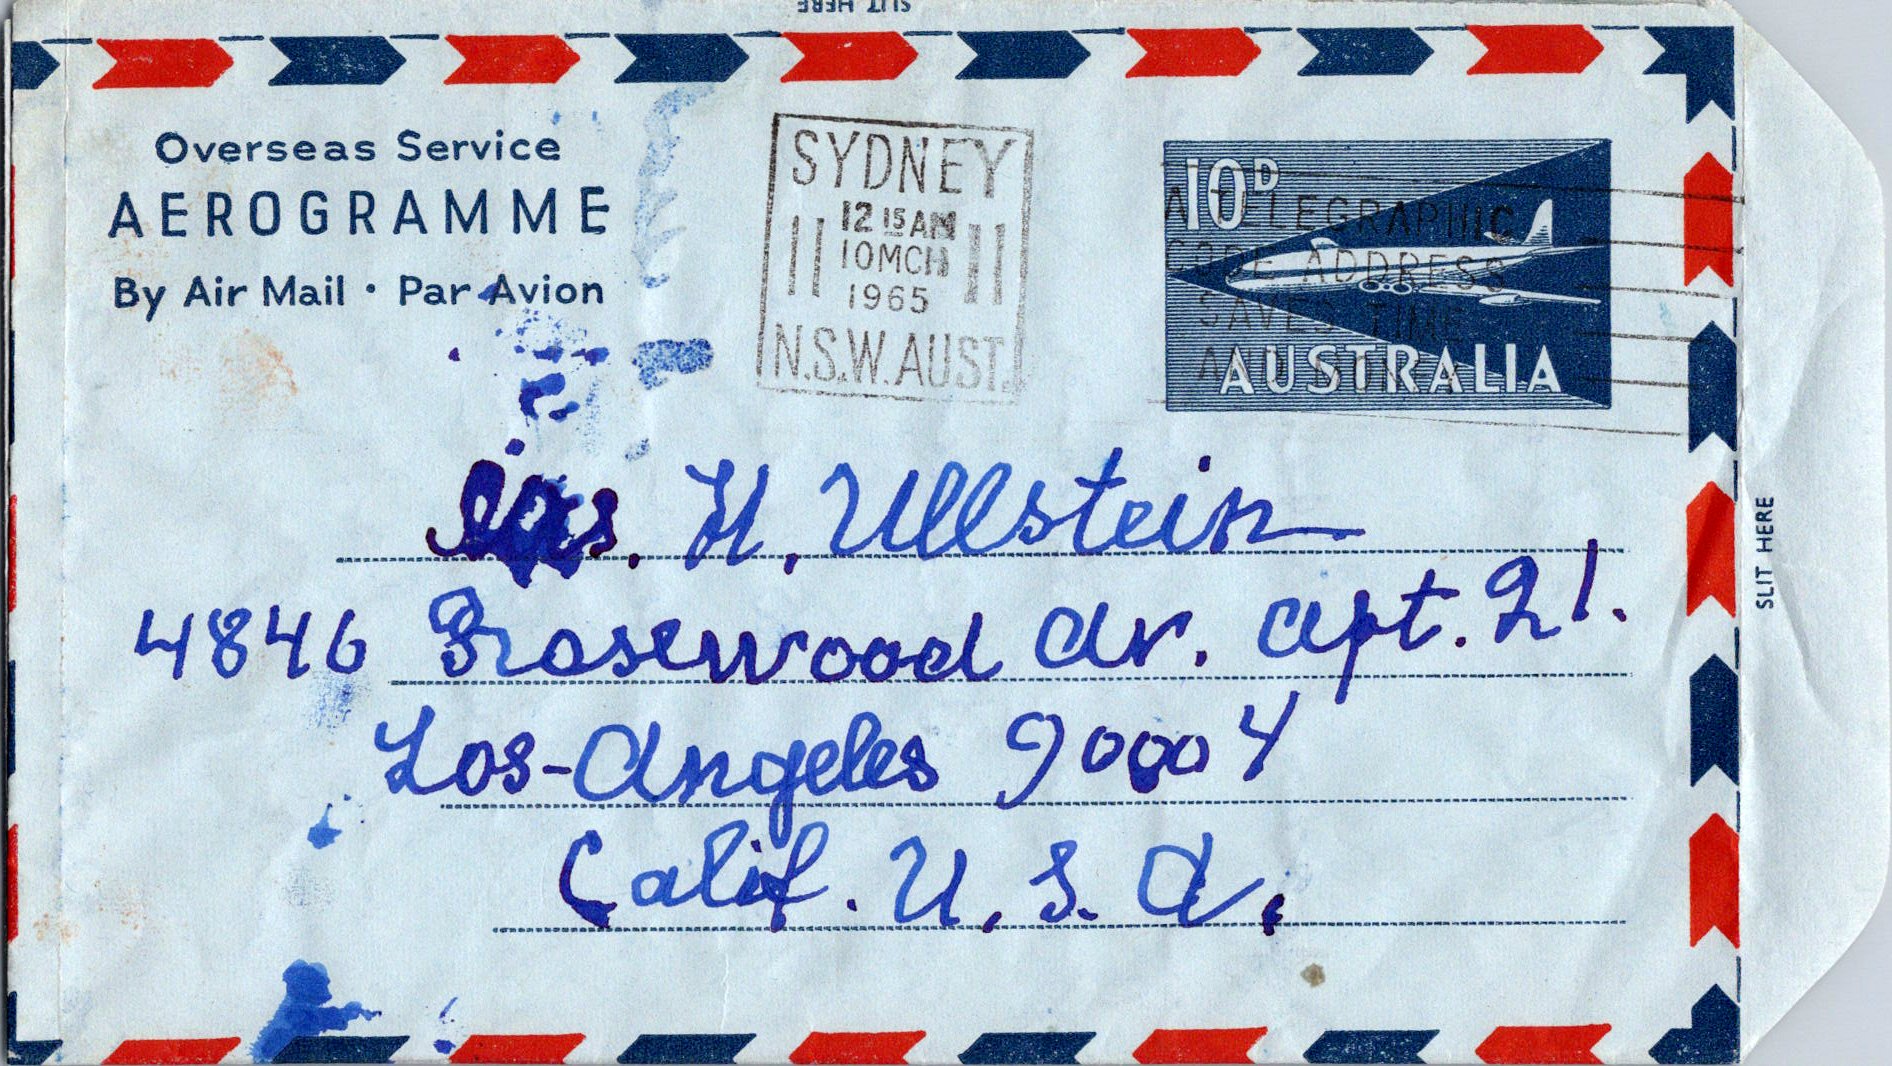 SLIT HERE
Overseas Service
AEROGRAMME
By Air Mail · Par Avion
SYDNEY
12 15 AM
10 MCH
1965
N.S.W. AUST.
10D
A TELEGRAPHIC
CODE ADDRESS
SAVES TIME
AND MONEY
AUSTRALIA
H. Ullstein
4846 Rosewood Av. Apt. 21.
Los-Angeles 90004
Calif. U.S.A.
SLIT HERE